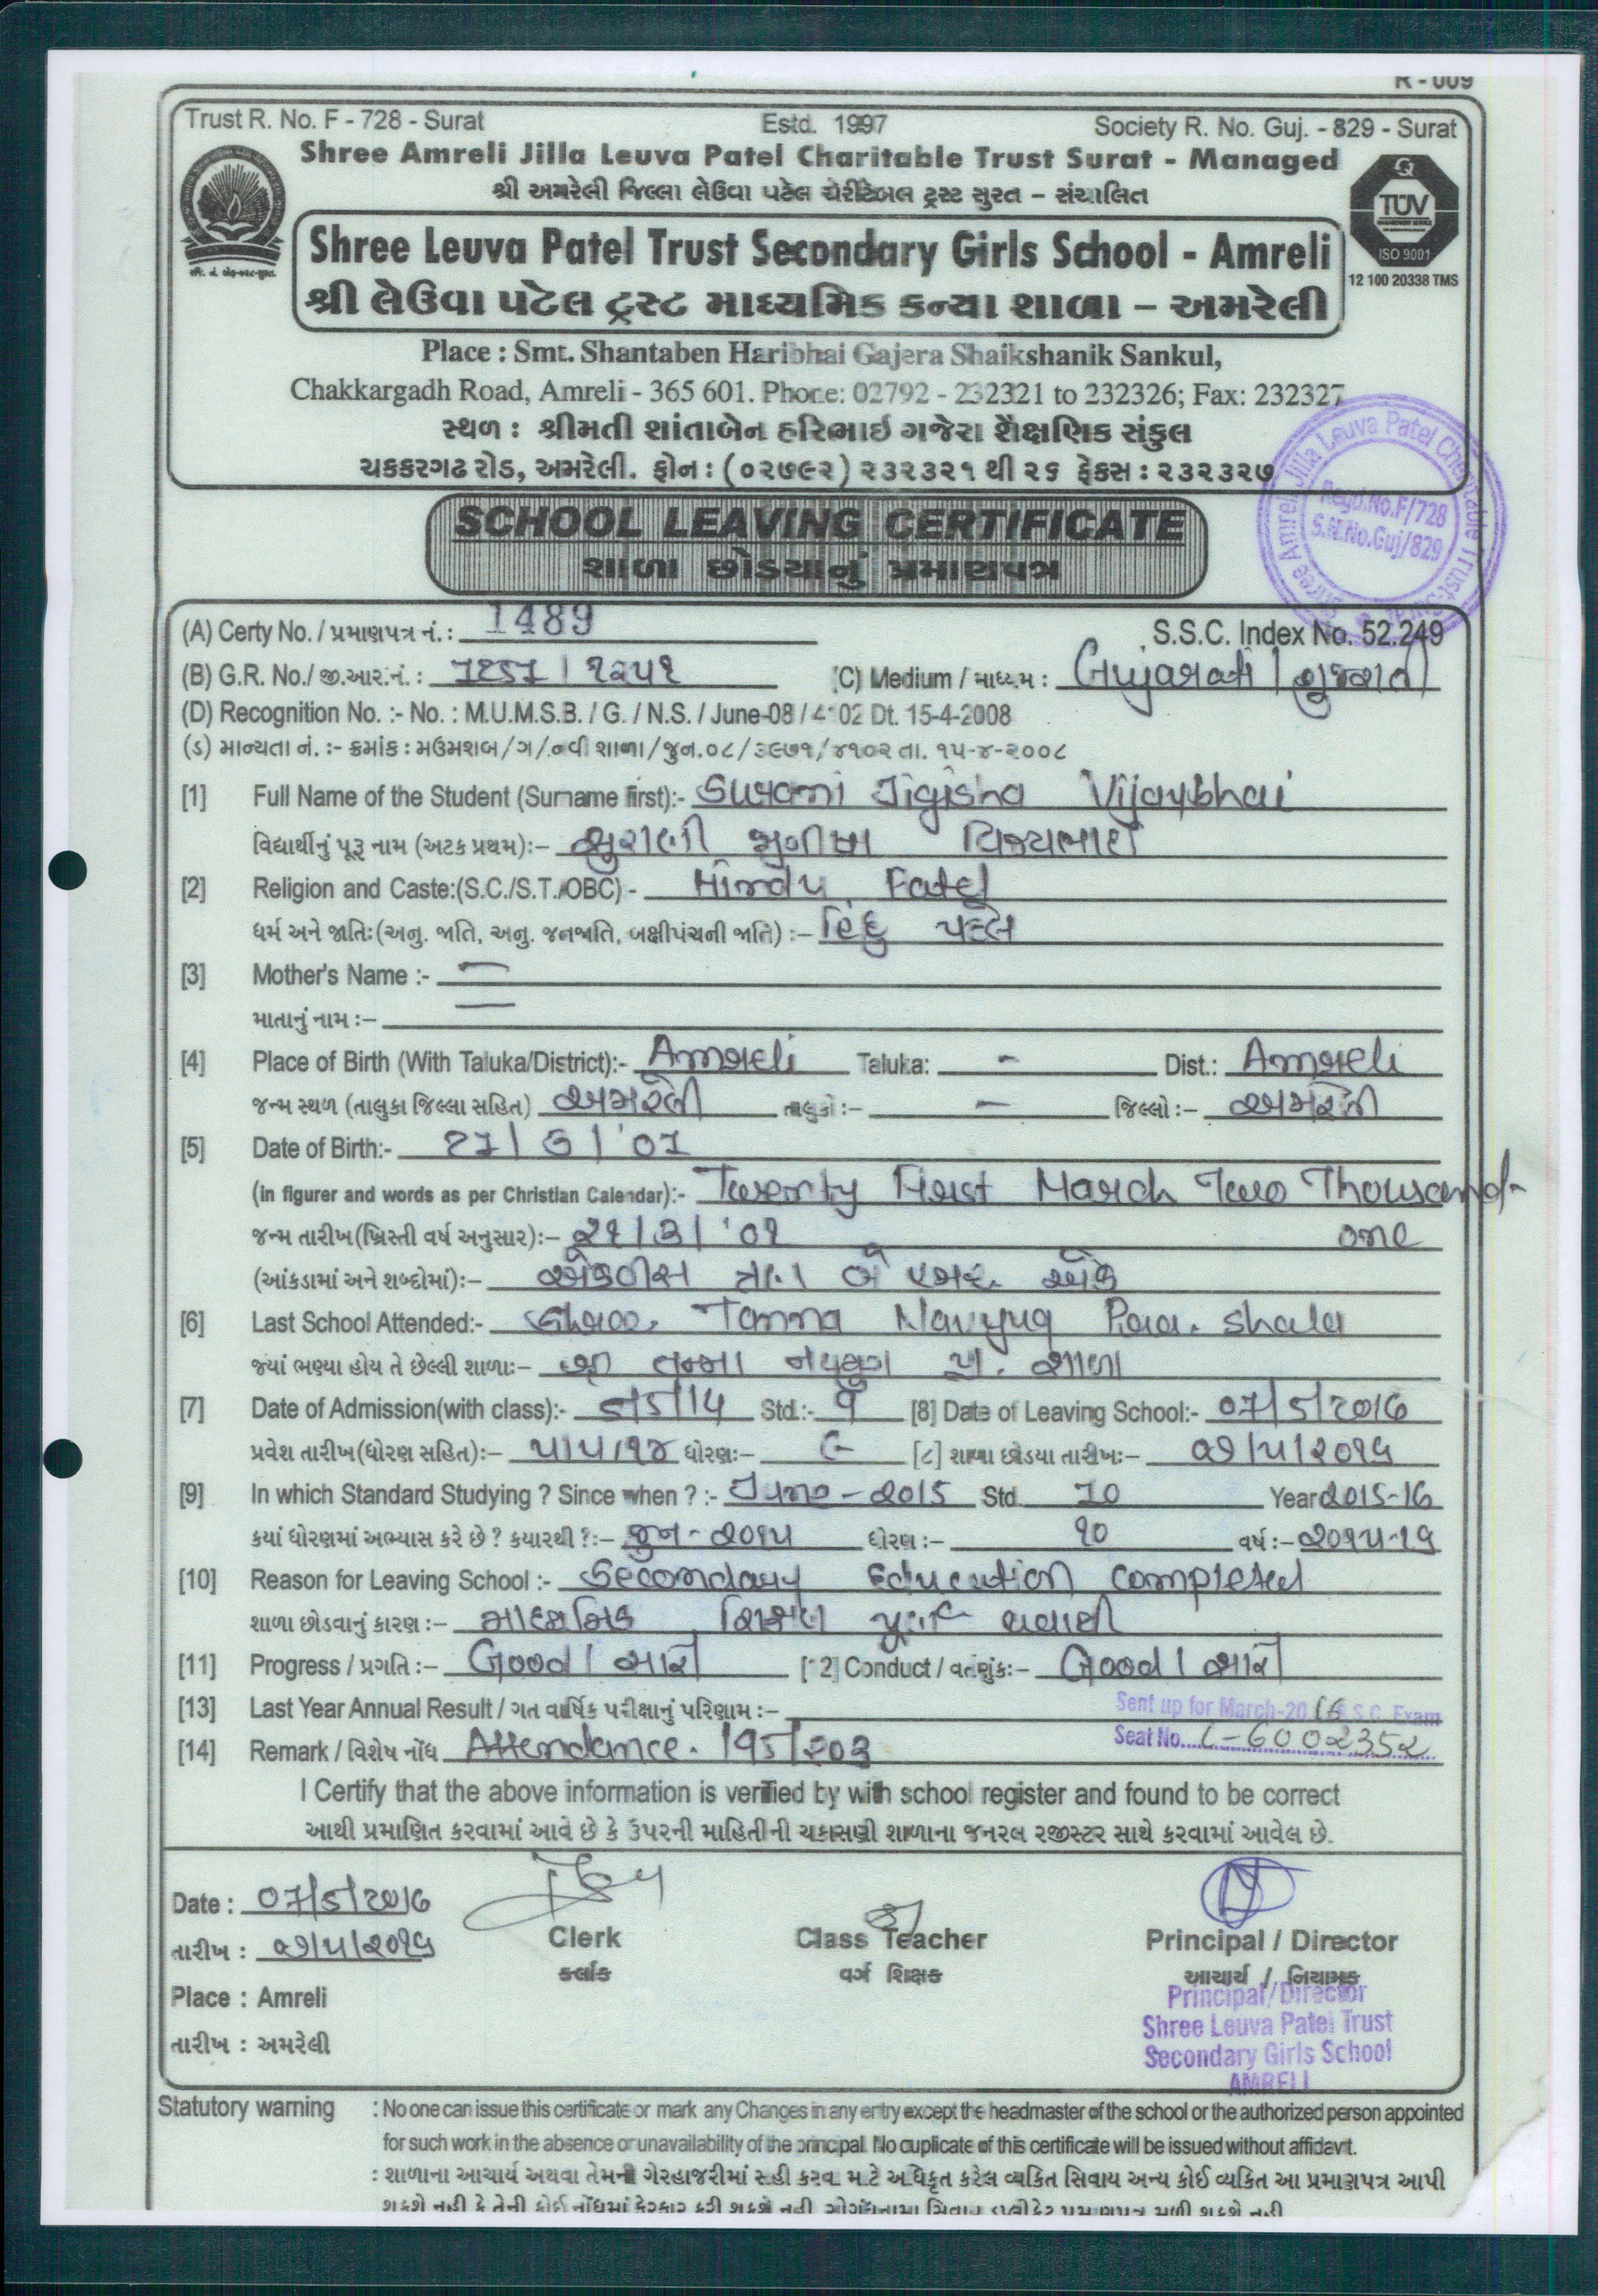 R - 009
Trust R. No. F - 728 - Surat Estd. 1997 Society R. No. Guj. - 829 - Surat
Shree Amreli Jilla Leuva Patel Charitable Trust Surat - Managed
શ્રી અમરેલી જિલ્લા લેઉવા પટેલ ચેરીટેબલ ટ્રસ્ટ સુરત – સંચાલિત
TÜV
ISO 9001
12 100 20338 TMS
Shree Leuva Patel Trust Secondary Girls School - Amreli
શ્રી લેઉવા પટેલ ટ્રસ્ટ માધ્યમિક કન્યા શાળા – અમરેલી
Place : Smt. Shantaben Haribhai Gajera Shaikshanik Sankul,
Chakkargadh Road, Amreli - 365 601. Phone: 02792 - 232321 to 232326; Fax: 232327
સ્થળ : શ્રીમતી શાંતાબેન હરિભાઈ ગજેરા શૈક્ષણિક સંકુલ
ચક્કરગઢ રોડ, અમરેલી. ફોન : (૦૨૭૯૨) ૨૩૨૩૨૧ થી ૨૬ ફેક્સ : ૨૩૨૩૨૭
Shree Amreli Jilla Leuva Patel Charitable Trust
Regd.No.F/728
S.N.No.Guj/829
SCHOOL LEAVING CERTIFICATE
શાળા છોડયાનું પ્રમાણપત્ર
(A) Certy No. / પ્રમાણપત્ર નં. : 1489 S.S.C. Index No. 52.249
(B) G.R. No./ જી.આર.નં. : 1251 / ૧૨૫૧ (C) Medium / માધ્યમ : Gujarati / ગુજરાતી
(D) Recognition No. :- No. : M.U.M.S.B. / G. / N.S. / June-08 / 4102 Dt. 15-4-2008
(ડ) માન્યતા નં. :- ક્રમાંક : મઉમશબ/ગ/નવી શાળા/જુન.૦૮/૩૯૭૧/૪૧૦૨ તા. ૧૫-૪-૨૦૦૮
[1] Full Name of the Student (Surname first):- Surani Jigisha Vijaybhai
વિદ્યાર્થીનું પૂરૂ નામ (અટક પ્રથમ):– સુરાણી જીગીષા વિજયભાઈ
[2] Religion and Caste:(S.C./S.T./OBC) - Hindu Patel
ધર્મ અને જાતિ:(અનુ. જાતિ, અનુ. જનજાતિ, બક્ષીપંચની જાતિ) :– હિંદુ પટેલ
[3] Mother's Name :- —
માતાનું નામ :– —
[4] Place of Birth (With Taluka/District):- Amreli Taluka: - Dist.: Amreli
જન્મ સ્થળ (તાલુકા જિલ્લા સહિત) અમરેલી તાલુકો :– - જિલ્લો :– અમરેલી
[5] Date of Birth:- 21 / 3 / '01
(in figurer and words as per Christian Calendar):- Twenty First March Two Thousand
જન્મ તારીખ(ખ્રિસ્તી વર્ષ અનુસાર):– ૨૧ / ૩ / '૦૧ one
(આંકડામાં અને શબ્દોમાં):– એકવીસ ત્રણ બે હજાર એક
[6] Last School Attended:- Shree Tanna Navyug Pra. Shala
જ્યાં ભણ્યા હોય તે છેલ્લી શાળા:– શ્રી તન્ના નવયુગ પ્રા. શાળા
[7] Date of Admission(with class):- 5/5/14 Std.:- 9 [8] Date of Leaving School:- 07/5/2016
પ્રવેશ તારીખ(ધોરણ સહિત):– ૫/૫/૧૪ ધોરણ:– ૯ [૮] શાળા છોડયા તારીખ:– ૦૭/૫/૨૦૧૬
[9] In which Standard Studying ? Since when ? :- June - 2015 Std 10 Year 2015-16
કયાં ધોરણમાં અભ્યાસ કરે છે? કયારથી ?:– જુન - ૨૦૧૫ ધોરણ :– ૧૦ વર્ષ :– ૨૦૧૫-૧૬
[10] Reason for Leaving School :- Secondary Education completed
શાળા છોડવાનું કારણ :– માધ્યમિક શિક્ષણ પૂર્ણ થવાથી
[11] Progress / પ્રગતિ :– Good / સારી [12] Conduct / વર્તણુંક:– Good / સારી
[13] Last Year Annual Result / ગત વાર્ષિક પરીક્ષાનું પરિણામ :– Sent up for March-2016 S.S.C. Exam
[14] Remark / વિશેષ નોંધ Attendance. 195/203 Seat No. C-6002352
I Certify that the above information is verified by with school register and found to be correct
આથી પ્રમાણિત કરવામાં આવે છે કે ઉપરની માહિતીની ચકાસણી શાળાના જનરલ રજીસ્ટર સાથે કરવામાં આવેલ છે.
Date : 07/5/2016
તારીખ : ૦૭/૫/૨૦૧૬
Clerk Class Teacher Principal / Director
કલાર્ક વર્ગ શિક્ષક આચાર્ય / નિયામક
Place : Amreli
તારીખ : અમરેલી
Principal/Director
Shree Leuva Patel Trust
Secondary Girls School
AMRELI
Statutory warning : No one can issue this certificate or mark any Changes in any entry except the headmaster of the school or the authorized person appointed
for such work in the absence or unavailability of the principal. No duplicate of this certificate will be issued without affidavit.
: શાળાના આચાર્ય અથવા તેમની ગેરહાજરીમાં સહી કરવા માટે અધિકૃત કરેલ વ્યકિત સિવાય અન્ય કોઈ વ્યકિત આ પ્રમાણપત્ર આપી
શકશે નહી કે તેની કોઈ નોંધમાં ફેરફાર કરી શકશે નહી. સોગંદનામા સિવાય ડુપ્લીકેટ પ્રમાણપત્ર મળી શકશે નહી.